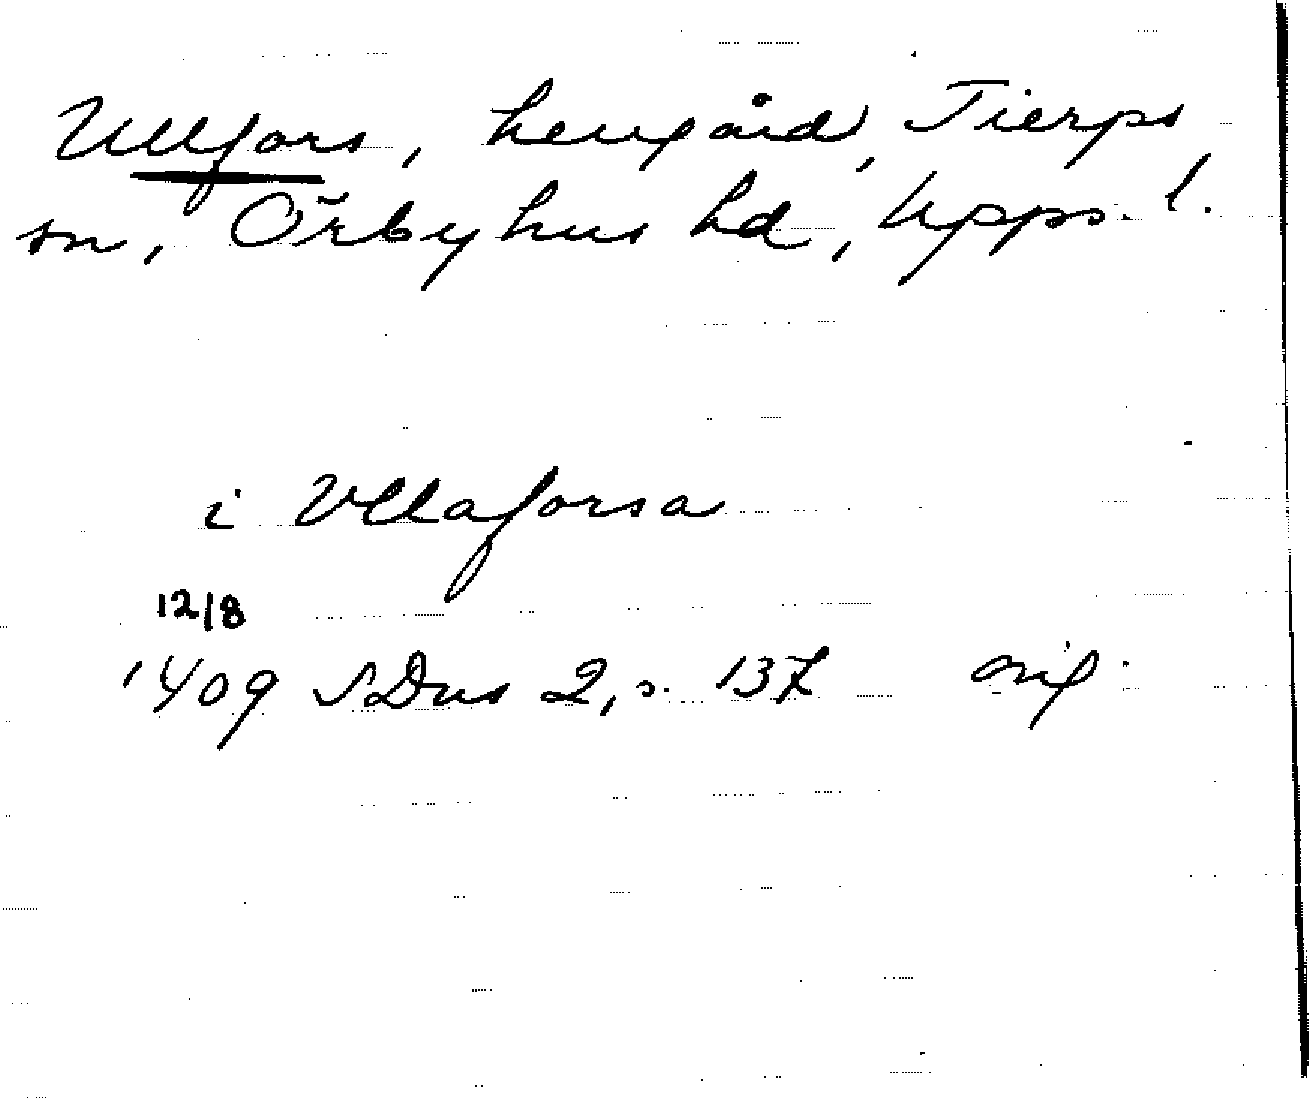 Ullfors, herrgård, Tierps
sn, Örbyhus hd, Upps. l.
i Vllaforsa
12/8
1409 SDns 2, s. 137 orig.